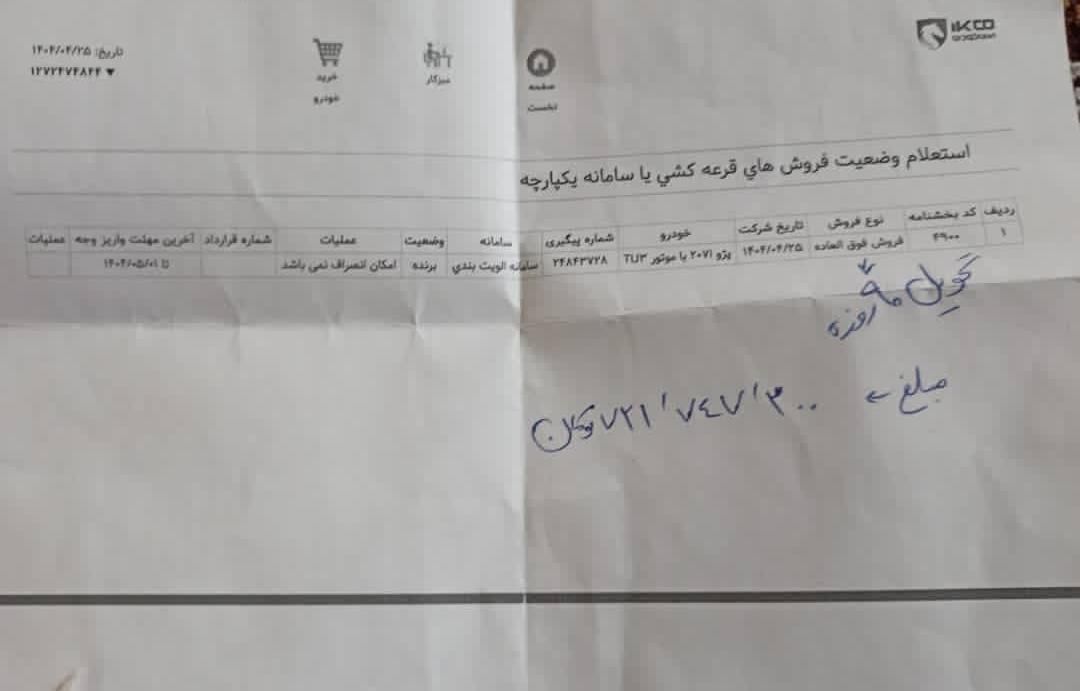 تاریخ: ۱۴۰۴/۰۴/۲۵
۱۲۷۲۴۷۴۸۴۴ ▼
خرید
خودرو
میزکار
صفحه
نخست
استعلام وضعیت فروش هاي قرعه كشي یا سامانه یکپارچه
ردیف کد بخشنامه نوع فروش تاریخ شرکت خودرو شماره پیگیری سامانه وضعیت عملیات شماره قرارداد آخرین مهلت واریز وجه عملیات
۱ ۴۹۰۰ فروش فوق العاده ۱۴۰۴/۰۴/۲۵ پژو ۲۰۷i با موتور TU۳ ۲۴۸۴۳۷۲۸ سامانه الویت بندي برنده امکان انصراف نمی باشد تا ۱۴۰۴/۰۵/۰۱
تحویل ۹۰ روزه
مبلغ ← ۷۲۱٬۷۴۷٬۳۰۰ تومان